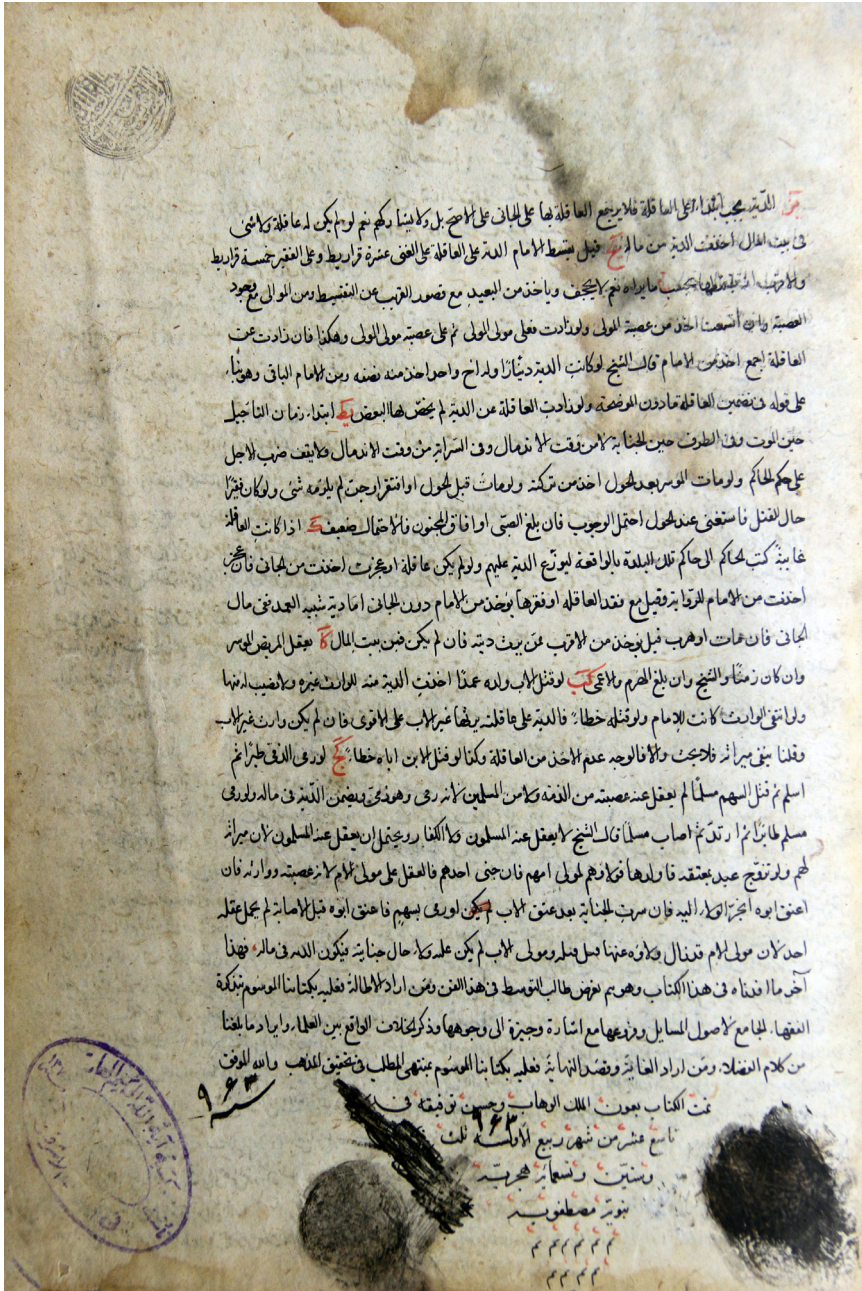 الدية يجب ابتداء على العاقلة فلا يرجع العاقلة بها على الجانى على الاصح بل ولا يشاركهم نعم لو لم يكن له عاقلة ولا شى
فى بيت المال اخذت الدية من ماله يح قيل يقسط الامام الدية على العاقلة على الغنى عشرة قراريط وعلى الفقير خمسة قراريط
والاقرب انه يقسطها بحسب ما يراه نعم لا يجحف وياخذ من البعيد مع قصور القريب عن التقسيط ومن الموالى مع وجود
العصبة وان اتسعت اخذ من عصبة المولى ولو زادت فعلى مولى المولى ثم على عصبة مولى المولى وهكذا فان زادت عن
العاقلة اجمع اخذ من الامام قال الشيخ لو كانت الدية دينارا وله اخ واحد اخذ منه نصفه ومن الامام الباقى وهو بناء
على قوله فى تضمين العاقلة ما دون الموضحة ولو زادت العاقلة عن الدية لم يخص بها البعض يط ابتداء زمان التاجيل
حين الموت وفى الطرف حين الجناية لا من وقت الاندمال وفى السراية من وقت الاندمال ولا يقف ضرب الاجل
على حكم الحاكم ولو مات الموسر بعد الحول اخذ من تركته ولو مات قبل الحول او افتقر او جن لم يلزمه شئ ولو كان فقيرا
حال القتل فاستغنى عند الحول احتمل الوجوب فان بلغ الصبى او افاق المجنون فالاحتمال ضعيف ك اذا كانت العاقلة
غايبة كتب الحاكم الى حاكم تلك البلدة بالواقعة ليوزع الدية عليهم ولو لم يكن عاقلة او عجزت اخذت من الجانى فان عجز
اخذت من الامام للرواية وقيل مع فقد العاقلة او فقرها يوخذ من الامام دون الجانى اما دية شبيه العمد ففى مال
الجانى فان مات او هرب قيل يوخذ من الاقرب ممن يرث ديته فان لم يكن فمن بيت المال كا يعقل المريض الموسر
وان كان زمنا والشيخ وان بلغ الهرم والاعمى كب لو قتل الاب ولده عمدا اخذت الدية منه للوارث غيره ولا نصيب له منها
ولو انتفى الوارث كانت للامام ولو قتله خطاء فالدية على عاقلته يرثها غير الاب على الاقوى فان لم يكن وارث غير الاب
وقلنا ينفى ميراثه فلا بحث والا فالوجه عدم الاخذ من العاقلة وكذا لو قتل الابن اباه خطاء كج لو رمى الذمى طيرا ثم
اسلم ثم قتل السهم مسلما لم يعقل عنه عصبته من الذمة ولا من المسلمين لانه رمى وهو ذمى ويضمن الدية فى ماله ولو رمى
مسلم طايرا ثم ارتد ثم اصاب مسلما قال الشيخ لا يعقل عنه المسلمون ولا الكفار ويحتمل ان يعقل عنه المسلمون لان ميراثه
لهم ولو تزوج عبد بمعتقة فاولدها فولاؤهم لمولى امهم فان جنى احدهم فالعقل على مولى الام لانه عصبته ووارثه فان
اعتق ابوه انجر الولاء اليه فان سرت الجناية بعد عتق الاب لو رمى بسهم فاعتق ابوه قبل الاصابة لم يحمل عقله
احد لان مولى الام قد زال ولاؤه عنها قبل قتله ومولى الاب لم يكن عليه ولاء حال جنايته فيكون الدية فى ماله فهذا
آخر ما افدناه فى هذا الكتاب وهو يم بغرض طالب التوسط فى هذا الفن ومن اراد الاطالة فعليه بكتابنا الموسوم بتذكرة
الفقهاء الجامع لاصول المسايل وفروعها مع اشارة وجيزة الى وجوهها وذكر الخلاف الواقع بين العلماء وايراد ما بلغنا
من كلام الفضلاء ومن اراد الغاية وقصد النهاية فعليه بكتابنا الموسوم بمنتهى المطلب فى تحقيق المذهب والله الموفق
سنه ۹۶۳
تمت الكتاب بعون الملك الوهاب وحسن توفيقه فى
تاسع عشر من شهر ربيع الاول سنه ۹۶۳ ثلث
وستين وتسعمائة هجرية
نبوية مصطفوية
م م م م م م
م م م م